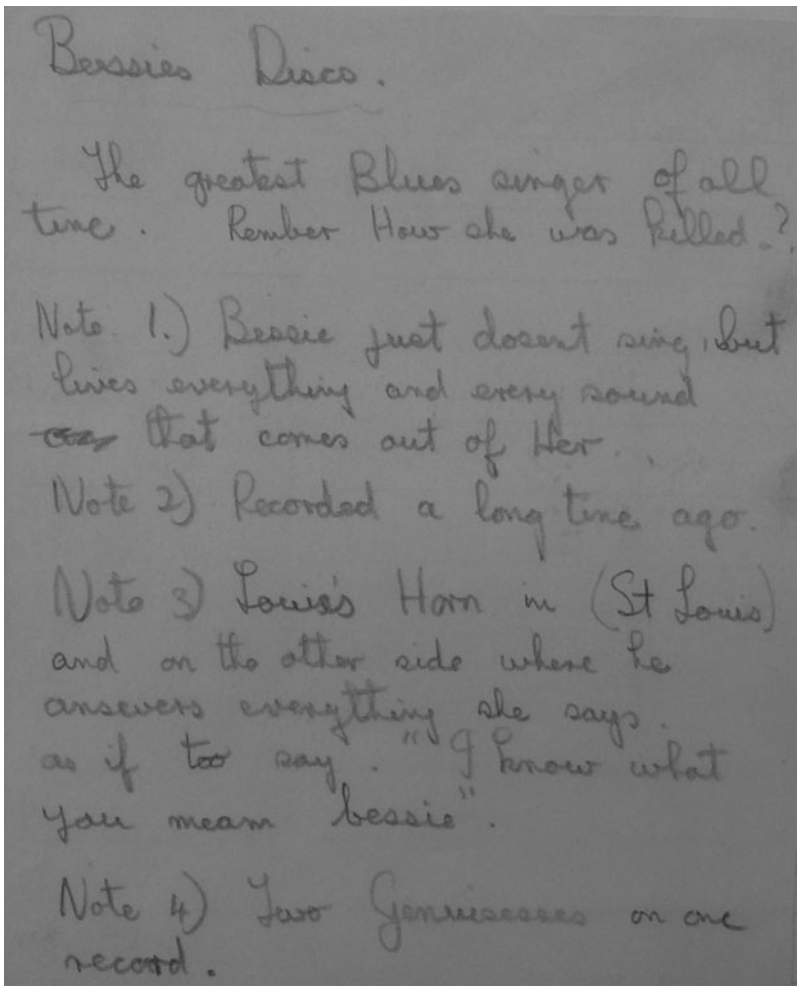 Bessies Disco.
The greatest Blues singer of all
time. Rember How she was killed.?
Note 1.) Bessie just dosent sing, but
lives everything and every sound
that comes out of Her..
Note 2) Recorded a long time ago.
Note 3) Louis's Horn in (St Louis)
and on the other side where he
answers everything she says.
as if too say. "I know what
you meam bessie".
Note 4) Two Genuisesses on one
record.